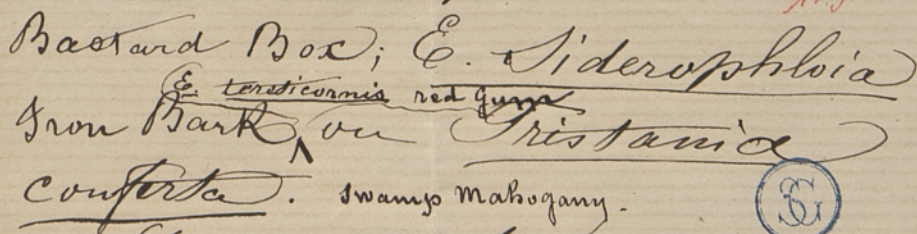 Bastard Box; E. Siderophloia
E. tereticornis red gum
Iron Bark, on Tristania
conferta. Swamp Mahogany.